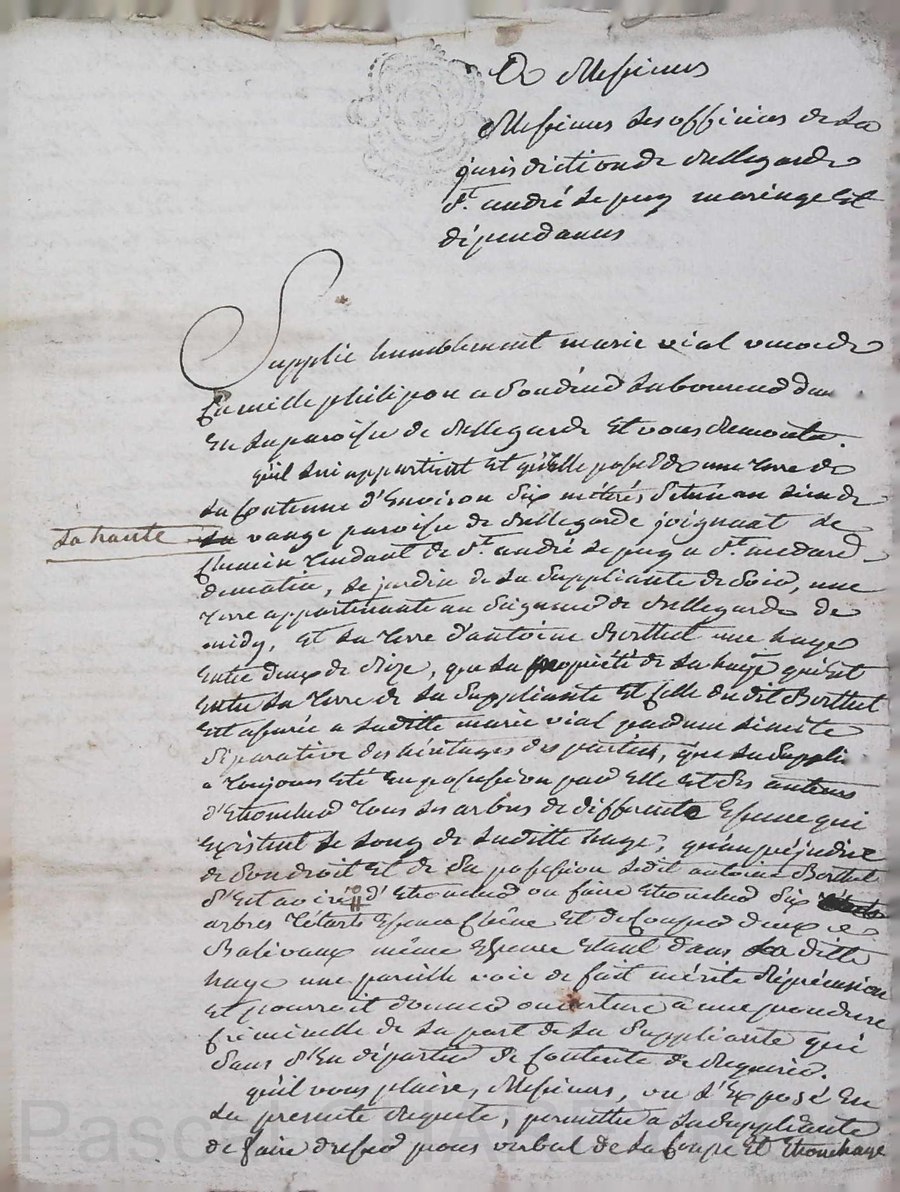 A Messieurs
Messieurs les officiers de la
jurisdiction de Bellegarde
St. andré le puy maringe et
dépendances
Supplie humblement marie vial veuve de
Camille philipon
en la paroisse de Bellegarde et vous remontre.
qu'il lui appartient et qu'elle possede une terre de
la contenue d'environ dix métérés située au lieu de
la haute
la vange paroisse de Bellegarde joignant le
chemin tendant de St. andré le puy a St. medard
de matin, le jardin de la suppliante de soir, une
terre appartenante au seigneur de Bellegarde de
midy, et la terre d'antoine Berthet une haye
entre deux de bize, que la propriété de la haye qui est
entre la terre de la suppliante et celle du dit Berthet
est assurée a laditte marie vial par une limite
séparative des héritages des parties, que la suppli.
a toujours été en possession par elle et ses auteurs
d'étroncher tous les arbres de differente espece qui
existent le long de laditte haye, qu'au préjudice
de son droit et de sa possession ledit antoine Berthet
s'est avisé d'étroncher ou faire étroncher dix
arbres tétards essence chêne et de couper deux
Balivaux même essence étant dans laditte
haye une pareille voie de fait mérite répréension
et pourroit donner ouverture a une procedure
criminelle de la part de la suppliante qui
sans s'en départir se contente de requerir.
qu'il vous plaise, Messieurs, vu l'exposé en
la presente requete, permettre a la suppliante
de faire dresser procès verbal de la coupe et étronchage
Pascal